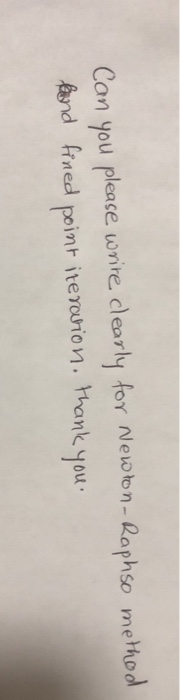 Can you please write clearly for Newton-Raphso method
and fixed point iteration. thank you.